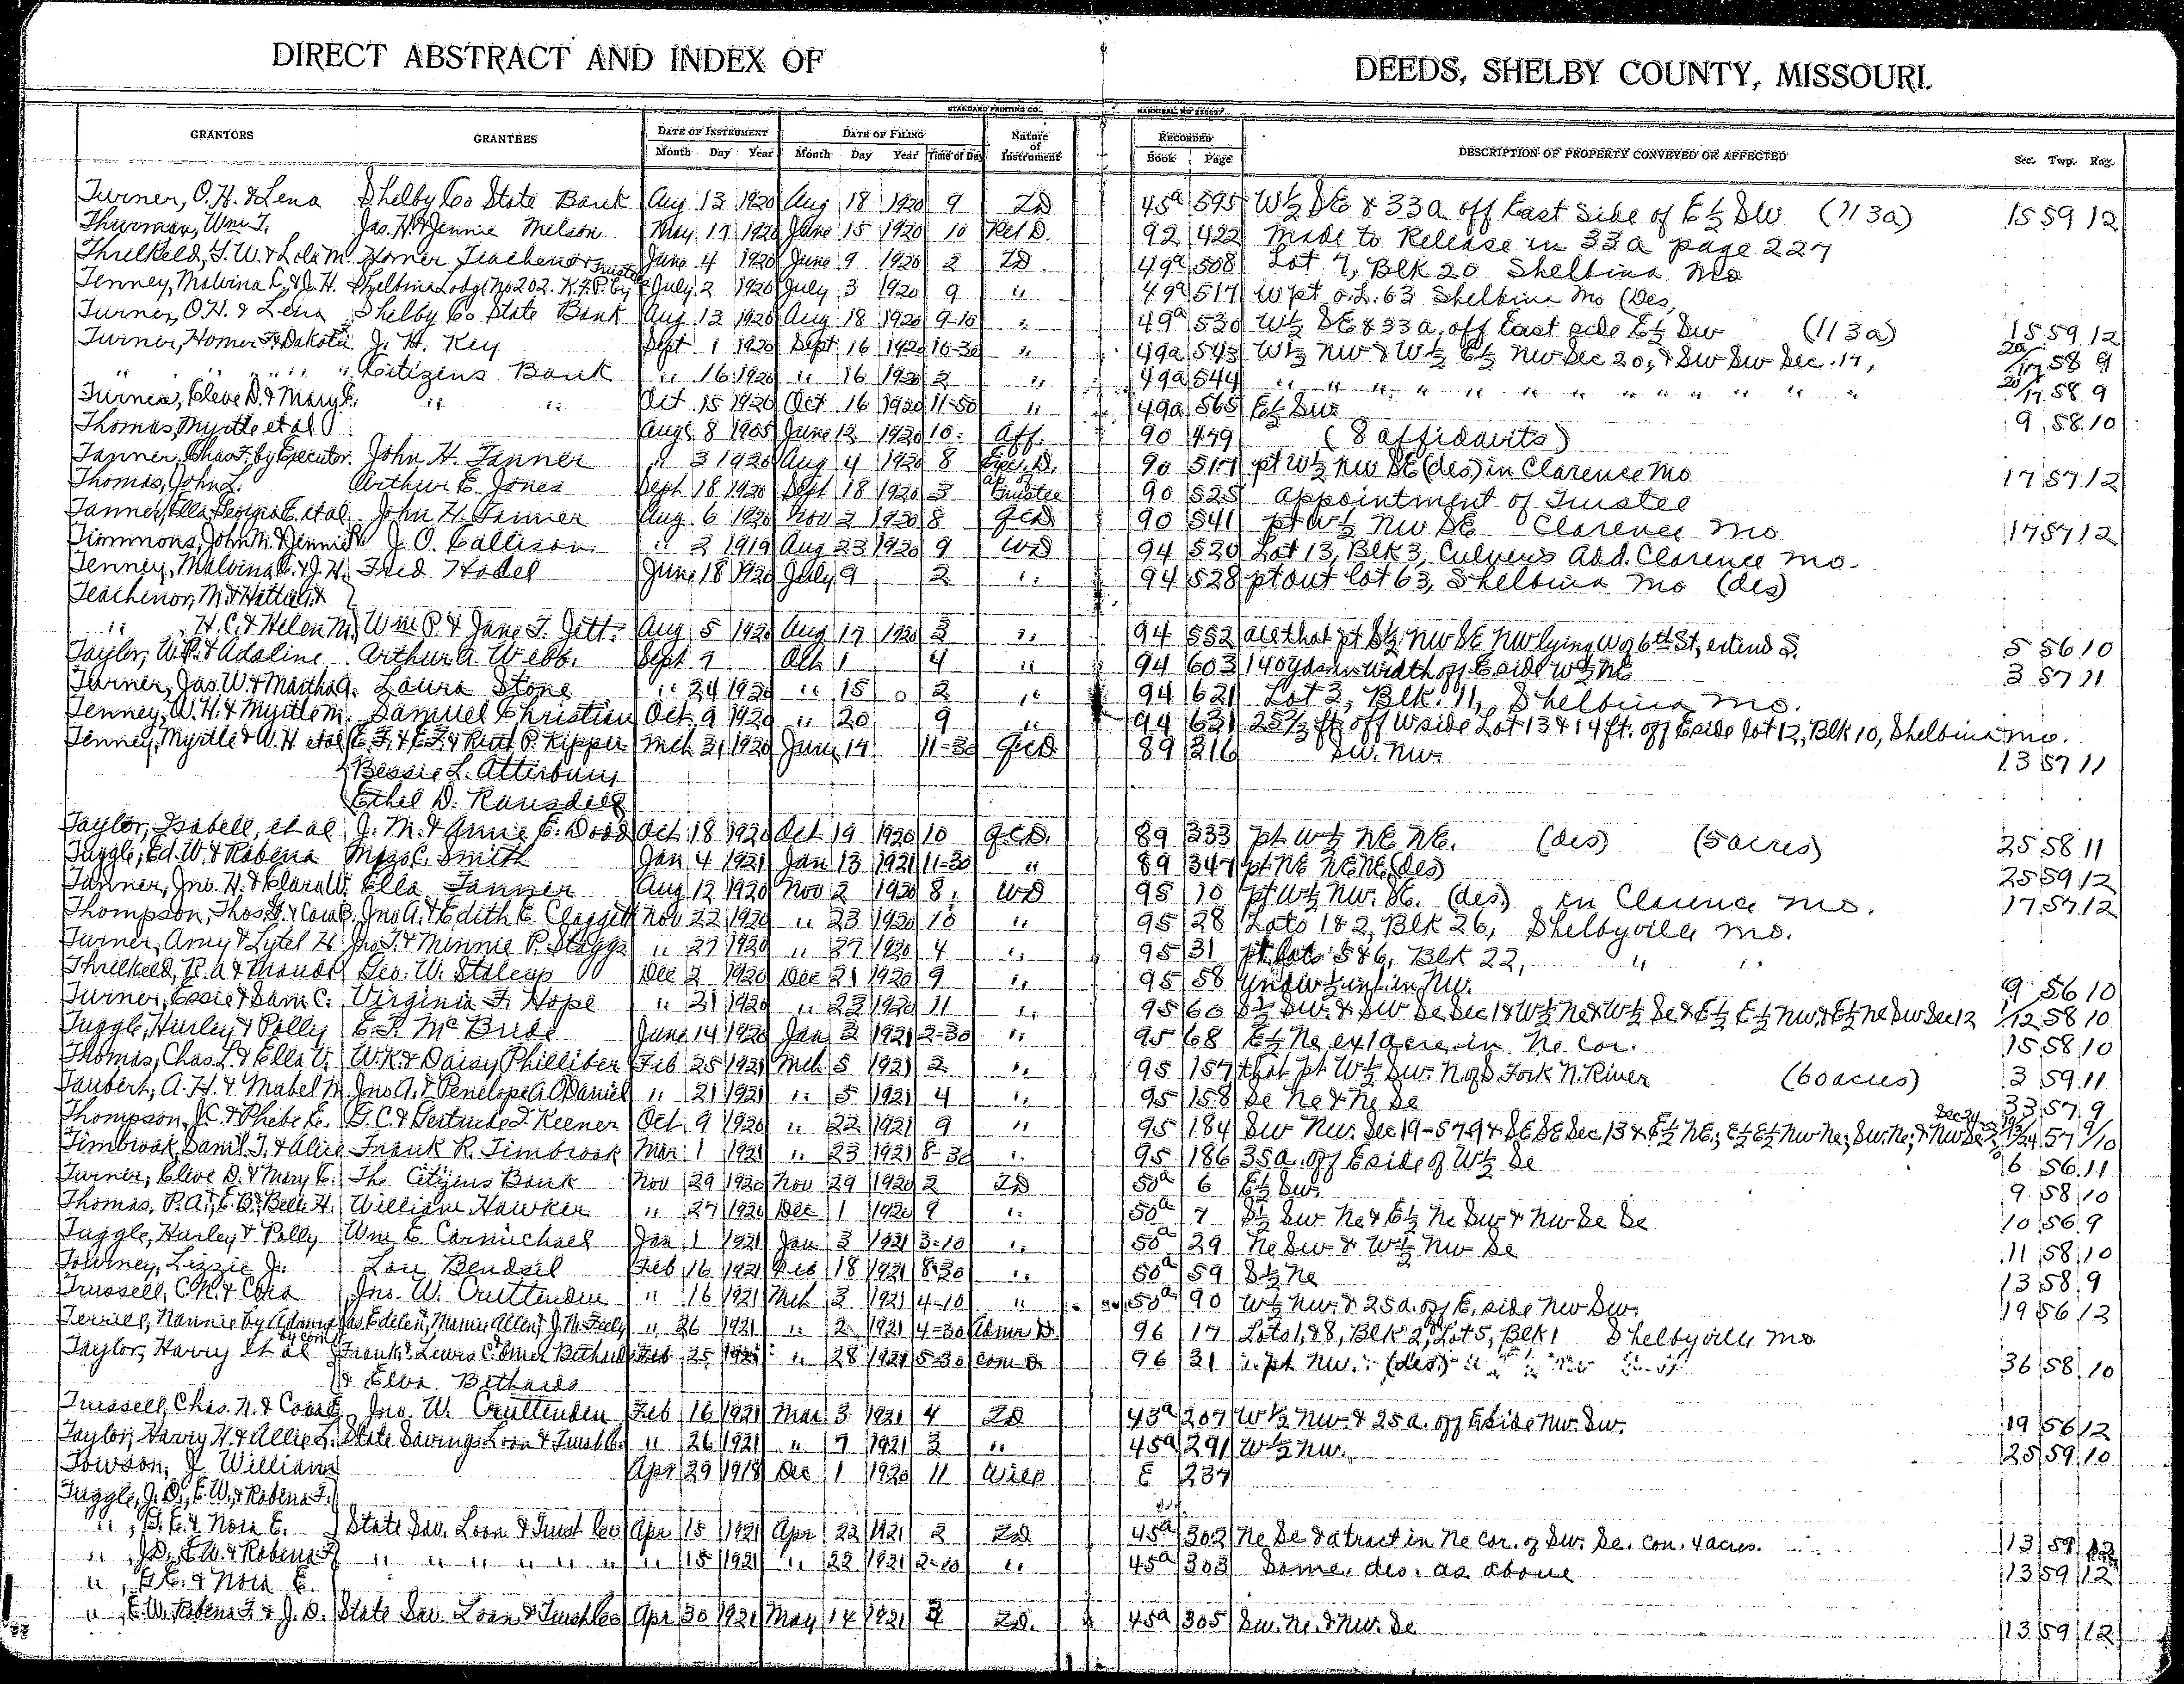 DIRECT ABSTRACT AND INDEX OF DEEDS, SHELBY COUNTY, MISSOURI.
STANDARD PRINTING CO. HANNIBAL, MO
GRANTORS GRANTEES DATE OF INSTRUMENT DATE OF FILING Nature of Instrument RECORDED DESCRIPTION OF PROPERTY CONVEYED OR AFFECTED Sec. Twp. Rng.
Month Day Year Month Day Year Time of Day Book Page
Turner, O.H. & Lena Shelby Co State Bank Aug 13 1920 Aug 18 1920 9 TD 45a 595 W½ SE & 33a off East Side of E½ SW (113a) 15 59 12
Thurman, Wm T. Jas. H & Jennie Melson May 17 1920 June 15 1920 10 Rel D. 92 422 Made to Release in 33a page 227
Threlkeld, T.W. & Lola M. Homer Teachenor Trustee June 4 1920 June 9 1920 2 TD. 49a 508 Lot 7, Blk 20 Shelbina Mo
Tenney, Malvina C. & J.H. Shelbina Lodge No 202. K.of P. by July 2 1920 July 3 1920 9 " 49a 517 W pt o.L. 63 Shelbina Mo (Des,
Turner, O.H. & Lena Shelby Co State Bank Aug 13 1920 Aug 18 1920 9-10 " 49a 530 W½ SE & 33a. off East side E½ SW (113a) 15 59 12
Turner, Homer F. & Dakota J. H. Key Sept 1 1920 Sept 16 1920 10-30 " 49a 543 W½ NW & W½ E½ NW Sec 20, & SW SW Sec. 17, 20/17 58 9
" " " " " Citizens Bank " 16 1920 " 16 1920 2 " 49a 544 " " " " " " " " " " 20/17 58 9
Turner, Cleve D. & Mary E. " " Oct 15 1920 Oct 16 1920 11-50 " 49a 565 E½ SW 9 58 10
Thomas, Myrtle et al Aug 8 1905 June 12 1920 10 Aff. 90 479 (8 affidavits)
Tanner, Chas F. by Executor. John H. Tanner " 3 1920 Aug 4 1920 8 Exec. D. 90 517 pt W½ NW SE (des) in Clarence Mo 17 57 12
Thomas, John L. Arthur E. Jones Sept 18 1920 Sept 18 1920 3 ap. of Trustee 90 525 appointment of Trustee
Tanner, Ella, Georgia E. et al John H. Tanner Aug. 6 1920 Nov 2 1920 8 QCD 90 541 pt W½ NW SE Clarence Mo 17 57 12
Timmons, John M. & Jennie J. O. Callison " 2 1919 Aug 23 1920 9 WD 94 520 Lot 13, Blk 3, Culvers Add. Clarence Mo.
Tenney, Malvina C. & J.H. Fred Hodel June 18 1920 July 9 2 " 94 528 pt out lot 63, Shelbina Mo (des)
Teachenor, M. & Hattie G. &
" H.C. & Helen M. Wm P. & Jane T. Jett Aug 5 1920 Aug 17 1920 3 " 94 552 all that pt S½ NW SE NW lying W of 6th St, extend S. 5 56 10
Taylor, W.P. & Adaline Arthur A. Webb. Sept 7 Oct 1 4 " 94 603 140 yds in width off E side W½ NE 3 57 11
Turner, Jas. W. & Martha A. Laura Stone " 24 1920 " 15 2 " 94 621 Lot 3, Blk. 11, Shelbina Mo.
Tenney, W.H. & Myrtle M. Samuel Christian Oct. 9 1920 " 20 9 " 94 631 25½ ft off W side Lot 13 & 14 ft. off E side lot 12, Blk 10, Shelbina Mo.
Tenney, Myrtle & W.H et al E.F. & Ruth P. Kipper Mch 31 1920 June 14 11-30 QCD 89 316 SW. NW. 13 57 11
Bessie L. Atterbury
Ethel D. Ransdell
Taylor, Isabell, et al J. M. & Anna E. Dodd Oct 18 1920 Oct 19 1920 10 QCD. 89 333 pt W½ NE NE. (des) (5 acres) 25 58 11
Tuggle, Ed. W. & Robena C. Smith Jan 4 1921 Jan 13 1921 11-30 " 89 347 pt NE NE NE (des) 25 59 12
Tanner, Jno. H. & Clara W. Ella Tanner Aug 12 1920 Nov 2 1920 8 WD 95 10 pt W½ NW. SE. (des) in Clarence Mo. 17 57 12
Thompson, Thos & Cora B. Jno A. & Edith E. Claggett Nov 22 1920 " 23 1920 10 " 95 28 Lots 1 & 2, Blk 26, Shelbyville Mo.
Turner, Amy & Lytel H Jno T. & Minnie P. Staggs " 27 1920 " 27 1920 4 " 95 31 pt lots 5 & 6, Blk 22, " "
Threlkeld, R.A. & Maude Geo. W. Stalcup Dec 2 1920 Dec 21 1920 9 " 95 58 Undiv ½ int in NW. 9 56 10
Turner, Essie & Sam C. Virginia F. Hope " 21 1920 " 23 1920 11 " 95 60 S½ SW. & SW Se Sec 1 & W½ Ne & W½ Se & E½ E½ NW, & E½ Ne SW Sec 12 1/12 58 10
Tuggle, Hurley & Polly E.P. McBride June 14 1920 Jan 3 1921 2-30 " 95 68 E½ Ne, ex 1 acre in Ne cor. 15 58 10
Thomas, Chas. L. & Ella V. W.K. & Daisy Philliber Feb 25 1921 Mch 5 1921 2 " 95 157 that pt W½ SW. N of S. Fork N. River (60 acres) 3 59 11
Taubert, A. H. & Mabel M Jno A. & Penelope A. O'Daniel " 21 1921 " 5 1921 4 " 95 158 Se Ne & Ne Se 33 57 9
Thompson, J.C. & Phebe E. G.C. & Gertrude I. Keener Oct 9 1920 " 22 1921 9 " 95 184 SW NW. Sec 19-57-9 & SE SE Sec. 13 & E½ NE., E½ E½ NW Ne; SW. Ne; & NW Se Sec 24 57 9/10
Timbrook, Saml. T. & Alice Frank R. Timbrook Mar 1 1921 " 23 1921 8-30 " 95 186 35a. off E side of W½ Se 6 56 11
Turner, Cleve D. & Mary E. The Citizens Bank Nov 29 1920 Nov 29 1920 2 TD 50a 6 E½ SW. 9 58 10
Thomas, P.A., E.B. & Belle H. William Hawker " 27 1920 Dec 1 1920 9 " 50a 7 S½ SW Ne & E½ Ne SW & NW Se Se 10 56 9
Tuggle, Hurley & Polly Wm. E. Carmichael Jan 1 1921 Jan 3 1921 3-10 " 50a 29 Ne SW & W½ NW Se 11 58 10
Towney, Lizzie J. Lou Bendsil Feb 16 1921 Feb 18 1921 8-30 " 50a 59 S½ Ne 13 58 9
Trussell, C.N. & Cora Jno. W. Cruttenden " 16 1921 Mch 3 1921 4-10 " 50a 90 W½ NW. & 25a. off E. side NW SW. 19 56 12
Terrill, Nannie by Admr Jas Edelen, Mamie Allen, & J.M. Feely " 26 1921 " 2 1921 4-30 Admr D. 96 17 Lots 1, & 8, Blk 2, & Lot 5, Blk 1 Shelbyville Mo
Taylor, Harry et al by Comr Frank & Lewis C. Omer Bethards Feb 25 1921 " 28 1921 5-30 Com D. 96 31 pt NW. (des) 36 58 10
& Elva Bethards
Trussell, Chas. N. & Cora E. Jno. W. Cruttenden Feb 16 1921 Mar 3 1921 4 TD 43a 207 W½ NW. & 25a. off E side NW. SW. 19 56 12
Taylor, Harry H. & Allie L. State Savings Loan & Trust Co. " 26 1921 " 7 1921 3 " 45a 291 W½ NW. 25 59 10
Towson, J William Apr 29 1918 Dec 1 1920 11 Will E 237
Tuggle, J.D., E.W., & Robena F.
" , G.E. & Nora E. State Sav. Loan & Trust Co Apr 15 1921 Apr 22 1921 2 TD 45a 302 Ne Se & a tract in Ne cor. of SW. Se. con. 4 acres. 13 59 12
" , J.D., E.W. & Robena F " " " " " " " 15 1921 " 22 1921 2-10 " 45a 303 Same. des. as above 13 59 12
" , G.E. & Nora E.
" , E.W. Robena F. & J.D. State Sav. Loan & Trust Co Apr 30 1921 May 14 1921 4 TD. 45a 305 SW. Ne. & NW. Se 13 59 12